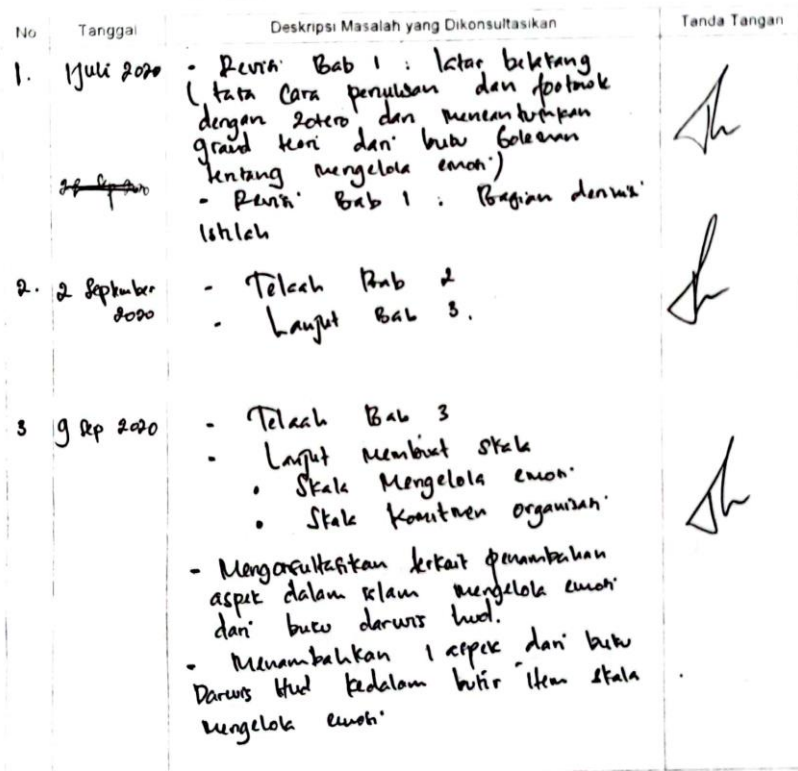 No Tanggal Deskripsi Masalah yang Dikonsultasikan Tanda Tangan
1. 1 Juli 2020 - Revisi Bab 1 : latar belakang
( tata cara penulisan dan footnote
dengan zotero dan mencantumkan
grand teori dari buku Goleman
tentang mengelola emosi)
- Revisi Bab 1 : Bagian
Istilah
2. 2 September 2020 - Telaah Bab 2
- Lanjut Bab 3.
3 9 Sep 2020 - Telaah Bab 3
- Lanjut membuat skala
• Skala Mengelola emosi
• Skala Komitmen organisasi
- Mengonsultasikan terkait penambahan
aspek dalam islam mengelola emosi
dari buku darwis hud.
- Menambahkan 1 aspek dari buku
Darwis Hud kedalam butir item skala
mengelola emosi